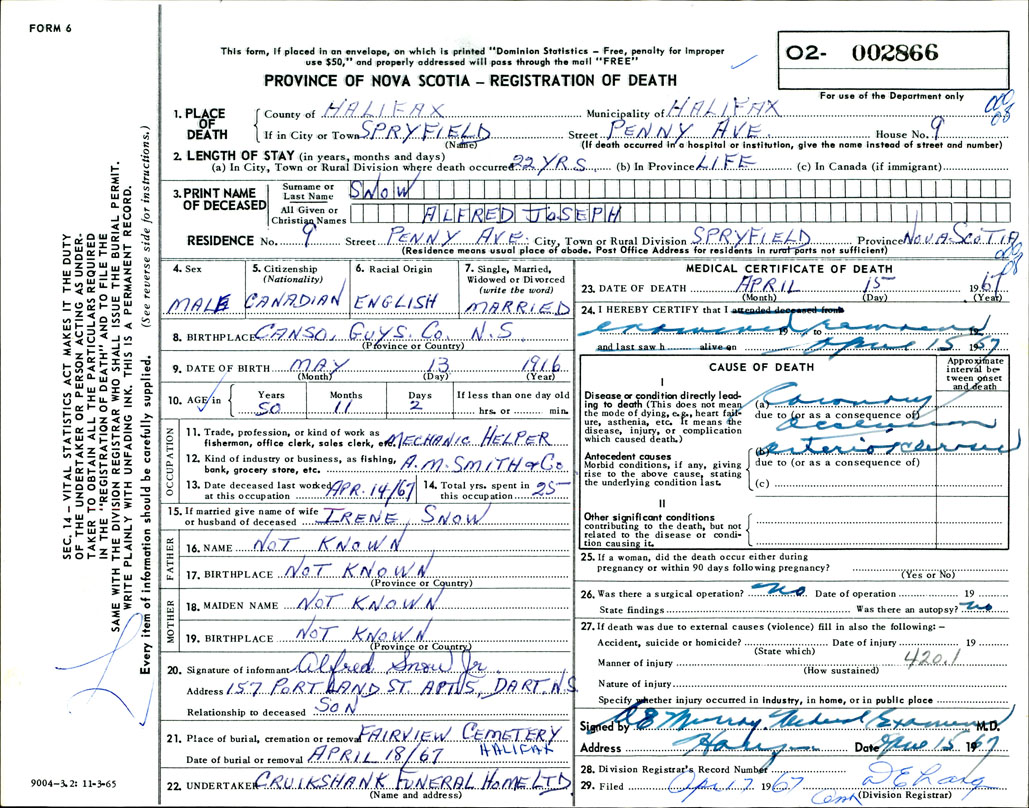 FORM 6
This form, if placed in an envelope, on which is printed "Dominion Statistics – Free, penalty for improper
use $50," and properly addressed will pass through the mail "FREE"
O2- 002866
For use of the Department only
PROVINCE OF NOVA SCOTIA – REGISTRATION OF DEATH
1. PLACE OF DEATH County of HALIFAX Municipality of HALIFAX
If in City or Town SPRYFIELD Street PENNY AVE. House No. 9
(Name) (If death occurred in a hospital or institution, give the name instead of street and number)
2. LENGTH OF STAY (in years, months and days)
(a) In City, Town or Rural Division where death occurred 22 YRS (b) In Province LIFE (c) In Canada (if immigrant)
3. PRINT NAME OF DECEASED Surname or Last Name SNOW
All Given or Christian Names ALFRED JOSEPH
RESIDENCE No. 9 Street PENNY AVE. City, Town or Rural Division SPRYFIELD Province NOVA SCOTIA
(Residence means usual place of abode. Post Office Address for residents in rural parts not sufficient)
4. Sex MALE
5. Citizenship (Nationality) CANADIAN
6. Racial Origin ENGLISH
7. Single, Married, Widowed or Divorced (write the word) MARRIED
8. BIRTHPLACE CANSO, GUYS. CO. N.S
(Province or Country)
9. DATE OF BIRTH MAY 13 1916
(Month) (Day) (Year)
10. AGE in Years 50 Months 11 Days 2 If less than one day old hrs. or min.
OCCUPATION
11. Trade, profession, or kind of work as
fisherman, office clerk, sales clerk, etc. MECHANIC HELPER
12. Kind of industry or business, as fishing,
bank, grocery store, etc. A.M. SMITH & Co
13. Date deceased last worked at this occupation APR. 14/67 14. Total yrs. spent in this occupation 25
15. If married give name of wife
or husband of deceased IRENE SNOW
FATHER
16. NAME NOT KNOWN
17. BIRTHPLACE NOT KNOWN
(Province or Country)
MOTHER
18. MAIDEN NAME NOT KNOWN
19. BIRTHPLACE NOT KNOWN
(Province or Country)
20. Signature of informant Alfred Snow Jr.
Address 157 PORTLAND ST. APT 5, DART. N.S
Relationship to deceased SON
21. Place of burial, cremation or removal FAIRVIEW CEMETERY
HALIFAX
Date of burial or removal APRIL 18/67
22. UNDERTAKER CRUIKSHANK FUNERAL HOME LTD
(Name and address)
MEDICAL CERTIFICATE OF DEATH
23. DATE OF DEATH APRIL 15 1967
(Month) (Day) (Year)
24. I HEREBY CERTIFY that I attended deceased from
examined remains 19 to
and last saw h alive on April 15 1967
CAUSE OF DEATH
Approximate interval between onset and death
I
Disease or condition directly leading to death (This does not mean the mode of dying, e.g., heart failure, asthenia, etc. It means the disease, injury, or complication which caused death.)
(a) Coronary
due to (or as a consequence of)
occlusion
Antecedent causes
Morbid conditions, if any, giving rise to the above cause, stating the underlying condition last.
(b)
due to (or as a consequence of)
(c)
II
Other significant conditions
contributing to the death, but not related to the disease or condition causing it.
25. If a woman, did the death occur either during
pregnancy or within 90 days following pregnancy?
(Yes or No)
26. Was there a surgical operation? no Date of operation 19
State findings Was there an autopsy? no
27. If death was due to external causes (violence) fill in also the following: –
Accident, suicide or homicide? Date of injury 19
(State which)
Manner of injury 420.1
(How sustained)
Nature of injury
Specify whether injury occurred in industry, in home, or in public place
Signed by Murray Medical Examiner M.D.
Address Date April 15 1967
28. Division Registrar's Record Number
29. Filed Apr 17 1967
(Division Registrar)
SEC. 14 – VITAL STATISTICS ACT MAKES IT THE DUTY
OF THE UNDERTAKER OR PERSON ACTING AS UNDER-
TAKER TO OBTAIN ALL THE PARTICULARS REQUIRED
IN THE "REGISTRATION OF DEATH" AND TO FILE THE
SAME WITH THE DIVISION REGISTRAR WHO SHALL ISSUE THE BURIAL PERMIT.
WRITE PLAINLY WITH UNFADING INK. THIS IS A PERMANENT RECORD.
Every item of information should be carefully supplied. (See reverse side for instructions.)
9004-3.2: 11-3-65